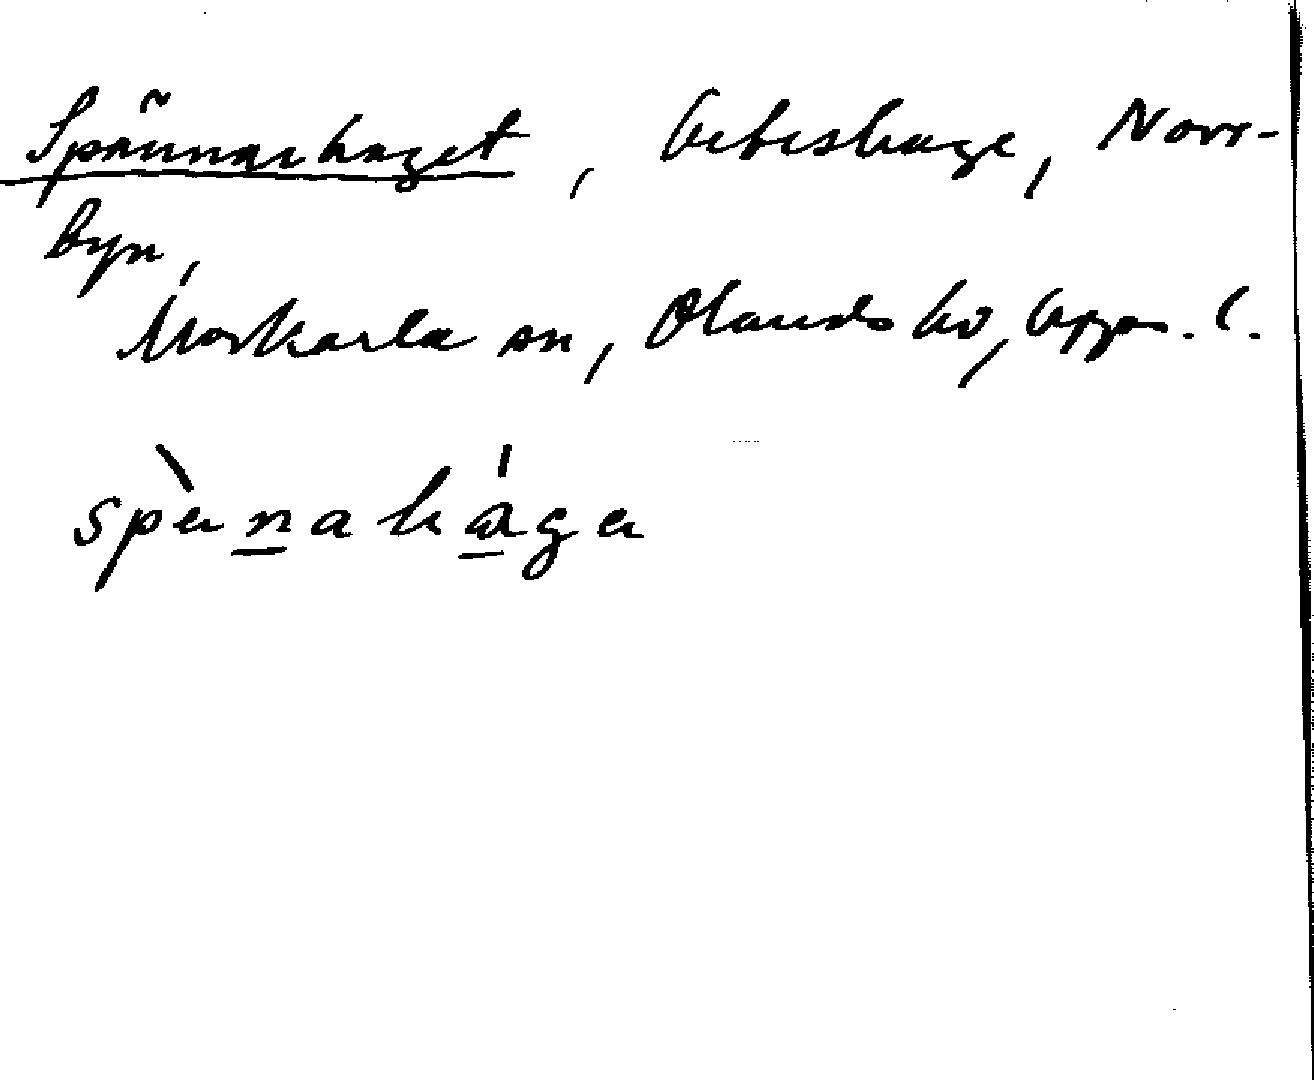 Spännarhaget, beteshage, Norr-
byn,
Morkarla sn, Olands hd, Upps. l.
spànahága